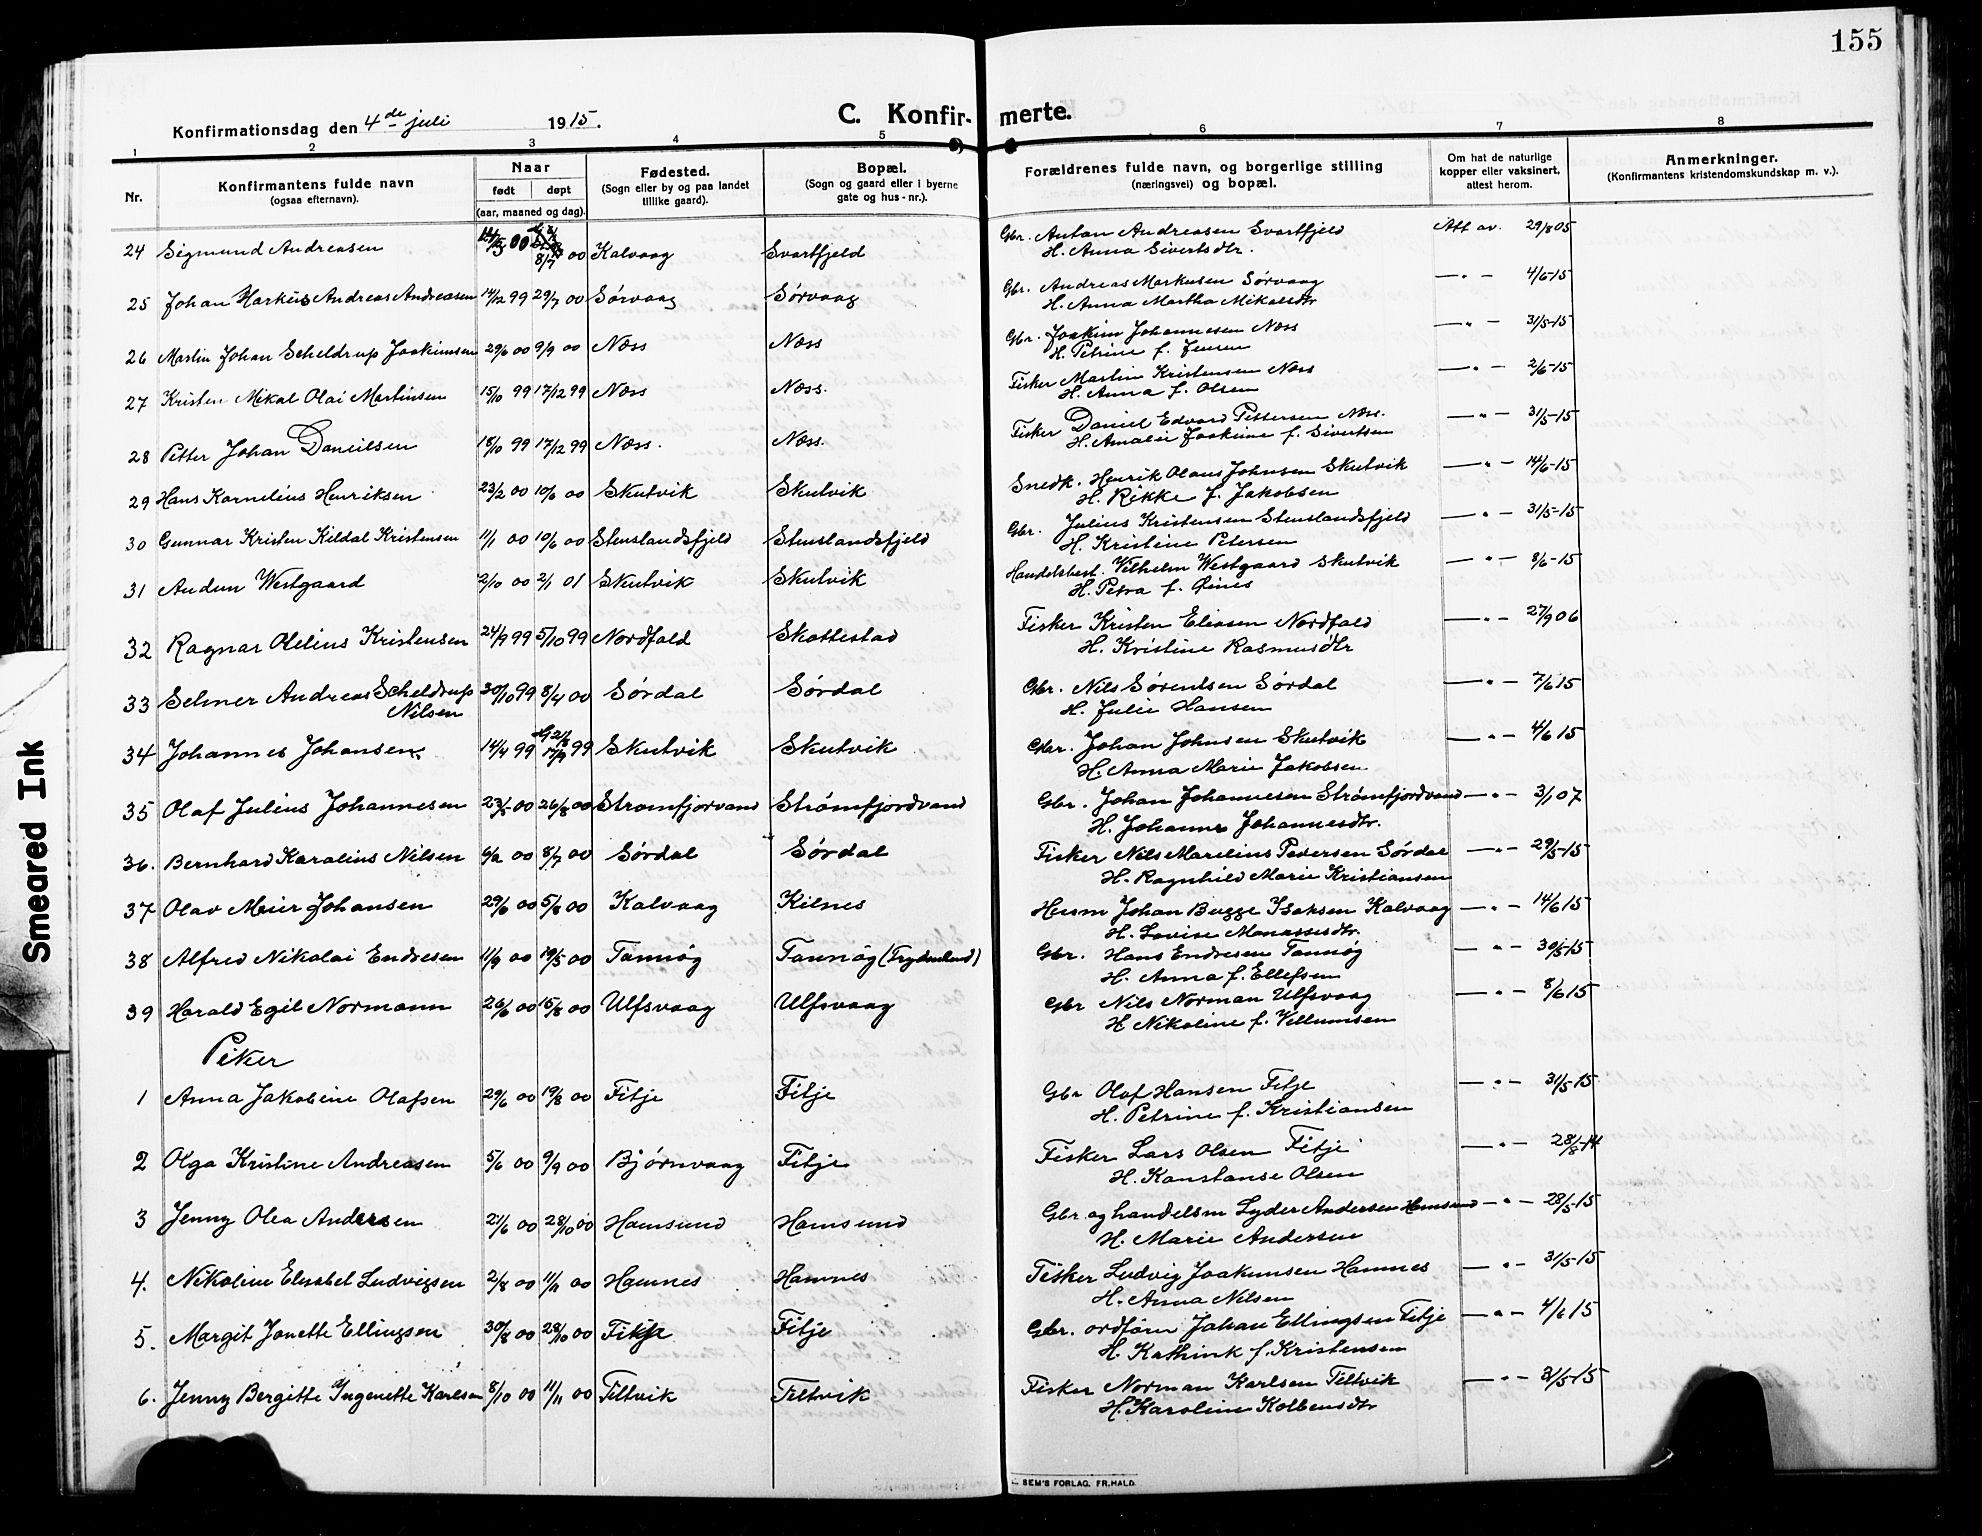 155
Konfirmationsdag den 4de juli 1915. C. Konfirmerte.
1 2 3 4 5 6 7 8
Nr. Konfirmantens fulde navn (ogsaa efternavn). Naar født døpt (aar, maaned og dag). Fødested. (Sogn eller by og paa landet tillike gaard). Bopæl. (Sogn og gaard eller i byerne gate og hus-nr.). Forældrenes fulde navn, og borgerlige stilling (næringsvei) og bopæl. Om hat de naturlige kopper eller vaksinert, attest herom. Anmerkninger. (Konfirmantens kristendomskundskap m. v.).
24 Sigmund Andreasen 00 8/7 00 Kalvaag Svartfjeld Gbr. Anton Andreasen Svartfjeld Att av. 29/8 05
H. Anna Sivertsdtr.
25 Johan Markus Andreas Andreasen 14/12 99 29/7 00 Sørvaag Sørvaag Gbr. Andreas Markusen Sørvaag — " — 4/6-15
H. Anna Martha Mikalsdtr
26 Martin Johan Scheldrup Joakimsen 29/6 00 9/9 00 Næss Næss Gbr. Joakim Johannesen Næss — " — 31/5-15
H. Petrine f. Jensen
27 Kristen Mikal Olai Martinsen 15/10 99 17/12 99 Næss Næss. Fisker Martin Kristensen Næss — " — 2/6-15
H. Anna f. Olsen
28 Petter Johan Danielsen 18/10 99 17/12 99 Næss. Næss. Fisker Daniel Edvard Pettersen Næss. — " — 31/5-15
H. Amalie Joakine f. Sivertsen
29 Hans Kornelius Henriksen 23/2 00 10/6 00 Skutvik Skutvik Snedk. Henrik Olaus Johnsen Skutvik — " — 14/6-15
H. Rikke f. Jakobsen
30 Gunnar Kristen Kildal Kristensen 11/1 00 10/6 00 Stenslandsfjeld Stenslandsfjeld Gbr. Julius Kristensen Stenslandsfjeld — " — 31/5-15
H. Kristine Petersen
31 Audun Westgaard 2/10 00 2/1 01 Skutvik Skutvik Handelsbest. Vilhelm Westgaard Skutvik — " — 8/6-15
H. Petra f.
32 Ragnar Olelius Kristensen 24/9 99 5/10 99 Nordfold Skottestad Fisker Kristen Eliasen Nordfold — " — 27/9 06
H. Kristine Rasmusdtr
33 Selmer Andreas Scheldrup Nilsen 30/10 99 8/4 00 Sørdal Sørdal Gbr. Nils Sørentsen Sørdal — " — 7/6 15
H. Julie Hansen
34 Johannes Johansen. 14/4 99 17/9 99 Skutvik Skutvik Gbr. Johan Johnsen Skutvik — " — 4/6 15
H. Anna Marie Jakobsen
35 Olaf Julius Johannesen 23/5 00 26/8 00 Strømfjorvand Strømfjordvand Gbr. Johan Johannesen Strømfjordvand — " — 3/1 07
H. Johanne Johannesdtr.
36. Bernhard Karolius Nilsen 6/2 00 8/7 00 Sørdal Sørdal Fisker Nils Marelius Pedersen Sørdal — " — 29/5-15
H. Ragnhild Marie Kristiansen
37 Olav Meier Johansen 29/6 00 5/8 00 Kalvaag Kilnes Husm Johan Bugge Isaksen Kalvaag — " — 14/6 15
H. Lovise Manassesdtr.
38 Alfred Nikolai Endresen 11/9 00 19/5 00 Tannøg Tannøg Gbr. Hans Endresen Tannøg — " — 30/5-15
H. Anna f. Ellefsen
39 Harald Egil Normann 26/6 00 15/8 00 Ulfsvaag Ulfsvaag Gbr Nils Norman Ulfsvaag — " — 8/6 15
H Nikoline f. Villumsen
Piker
1 Anna Jakobine Olafsen 29/6 00 19/8 00 Fitje Fitje Gbr Olaf Hansen Fitje — " — 31/5-15
H. Petrine f. Kristiansen
2 Olga Kristine Andreasen 5/6 00 9/9 00 Bjørnvaag Fitje Fisker Lars Olsen Fitje — " — 28/8-14
H. Konstanse Olsen
3 Jenny Olea Andersen 21/6 00 28/10 00 Hamsund Hamsund Gbr og handelsm Lyder Andersen Hamsund — " — 28/5-15
H. Marie Andersen
4. Nikoline Elisabet Ludvigsen 2/8 00 11/11 00 Hamnes Hamnes Fisker Ludvig Joakimsen Hamnes — " — 31/5-15
H. Anna Nilsen
5. Margit Jonette Ellingsen 30/8 00 28/10 00 Fitje Fitje Gbr. ordfører Johan Ellingsen Fitje — " — 4/6 15
H. Kathink f. Kristensen
6. Jenny Bergitte Ingenette Karlsen 8/10 00 11/11 00 Tiltvik Tiltvik Fisker Norman Karlsen Tiltvik — " — 31/5-15
H. Karoline Kolbensdtr
SEM'S FORLAG, FR.HALD.
Smeared Ink